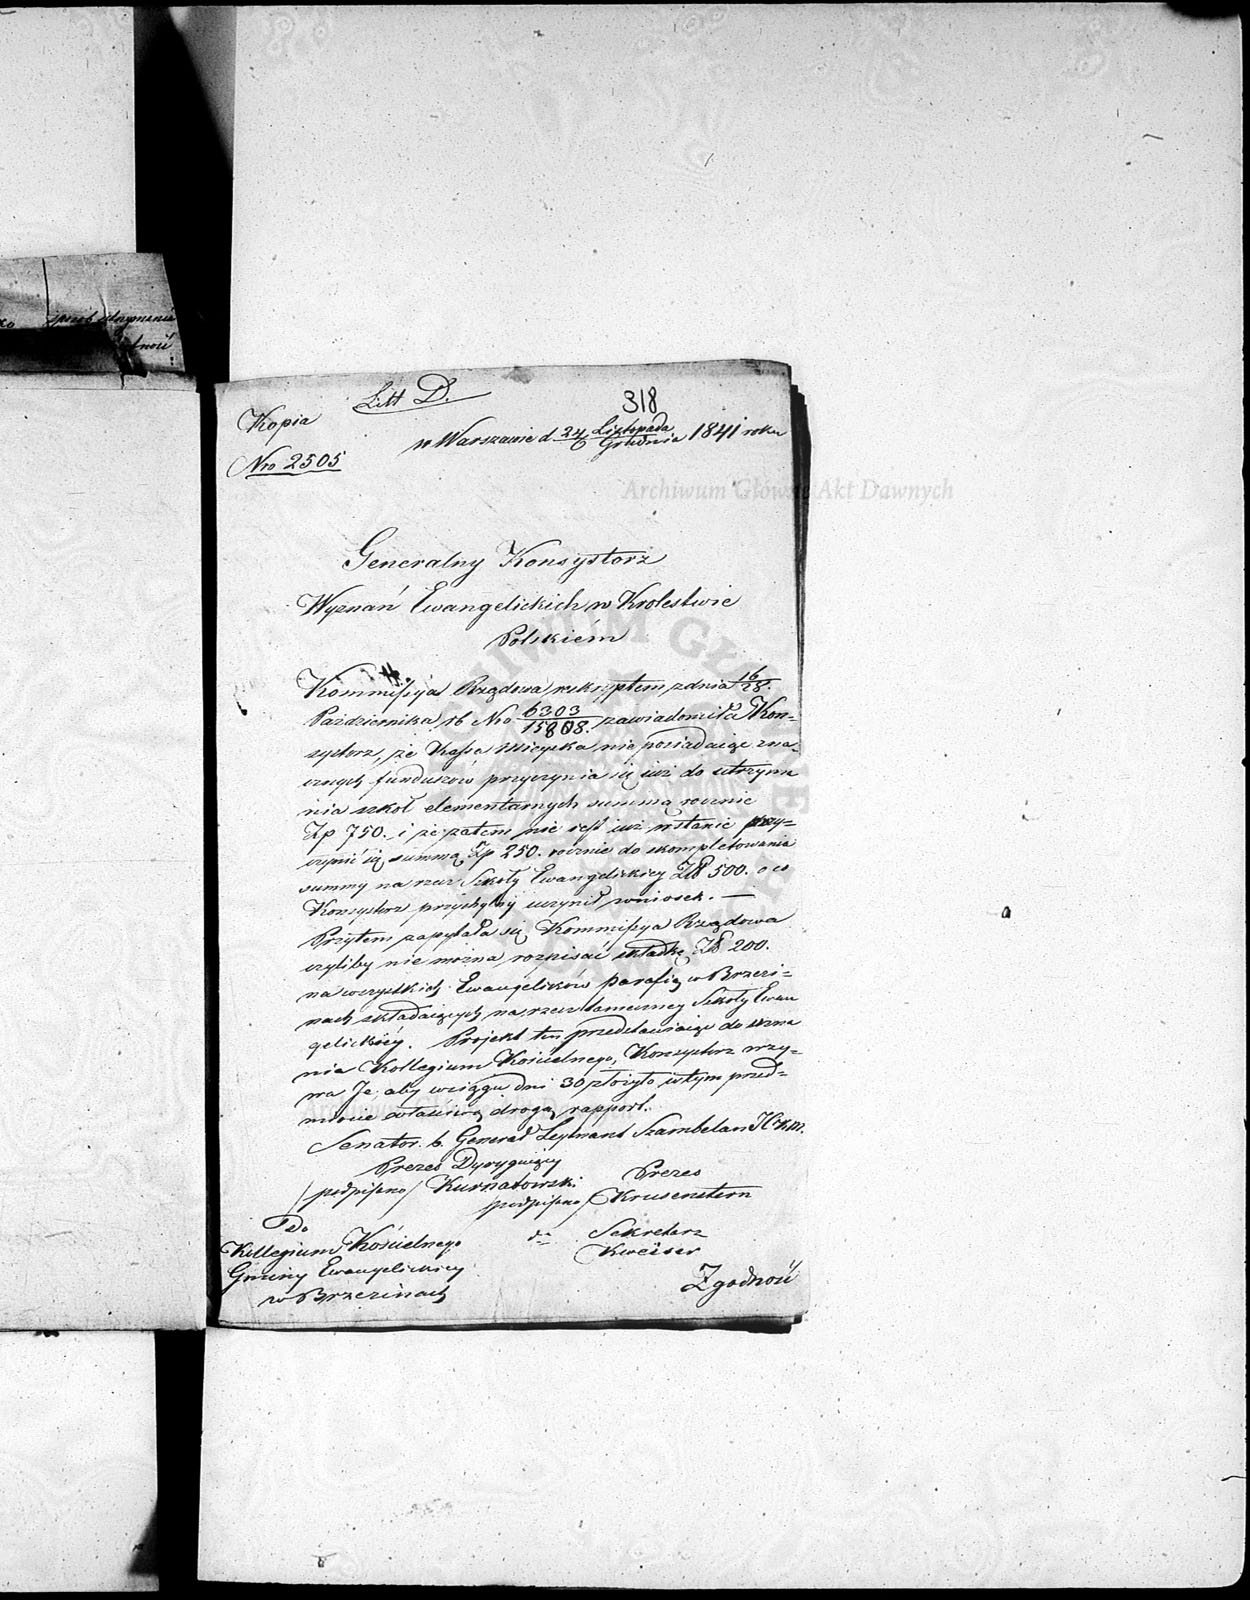 sposób utrzymania
Litt D.
318
Kopia
w Warszawie d 24/6 Listopada/Grudnia 1841 roku
Nro 2505
Archiwum Główne Akt Dawnych
Generalny Konsystorz
Wyznań Ewangelickich w Krolestwie
Polskiém
Kommissya Rządowa reskryptem z dnia 16/28.
Października rb Nro 6303/15808. zawiadomiła Kon-
systorz, że Kassa Mieyska nie posiadaiąc zna-
cznych funduszów przyczynia się iuż do utrzyma
nia szkoł elementarnych summą rocznie
Zp 750. i że zatem nie iest iuż w stanie przy-
czynić się summą Zp 250. rocznie do skompletowania
summy na rzecz Szkoły Ewangelickiey Zł 500. o co
Konsystorz przychylny uczynił wniosek. —
Przytem zapytała się Kommissya Rządowa
czyliby nie można rozpisać składkę Zł 200.
na wszystkich Ewangelików parafią w Brzezi-
nach składaiących na rzecz tameczney Szkoły Ewan
gelickiéy. Projekt ten przedstawiaiąc do uzna
nia Kollegium Kościelnego, Konsystorz wzy-
wa Je, aby w ciągu dni 30 złożyło w tym przed-
miocie właściwą drogą rapport.
Senator b. Generał Leytnant Szambelan J. C. K. M.
Prezes Dyryguiący
Prezes
/podpisano/ Kurnatowski
/podpisano/ Krusenstern
Do
Kollegium Kościelnego
Sekretarz
Gminy Ewangelickiey
w Brzezinach
Zgodność
ARCHIWUM GŁÓWNE AKT DAWNYCH